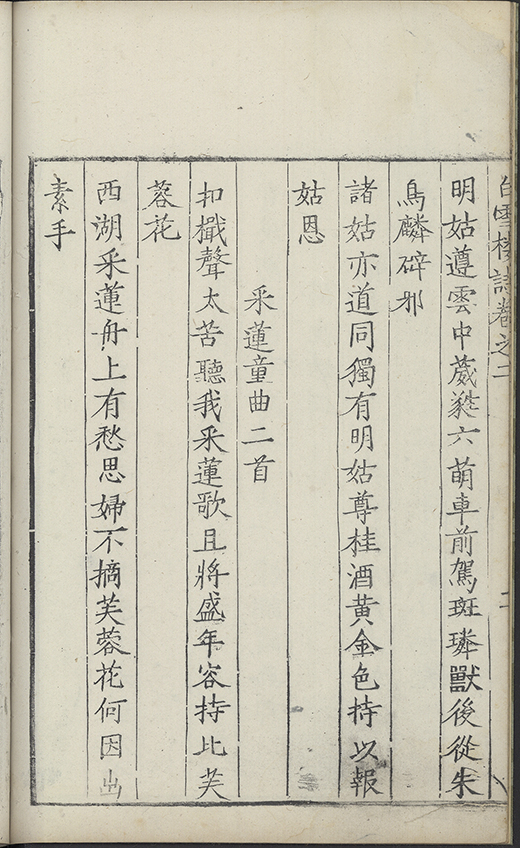 白雪樓詩卷之二
二
明姑遵雲中葳蕤六萌車前駕斑璘獸後從朱
鳥麟辟邪
諸姑亦道同獨有明姑尊桂酒黃金色持以報
姑恩
采蓮童曲二首
扣檥聲太苦聽我采蓮歌且將盛年容持比芙
蓉花
西湖采蓮舟上有愁思婦不摘芙蓉花何因出
素手